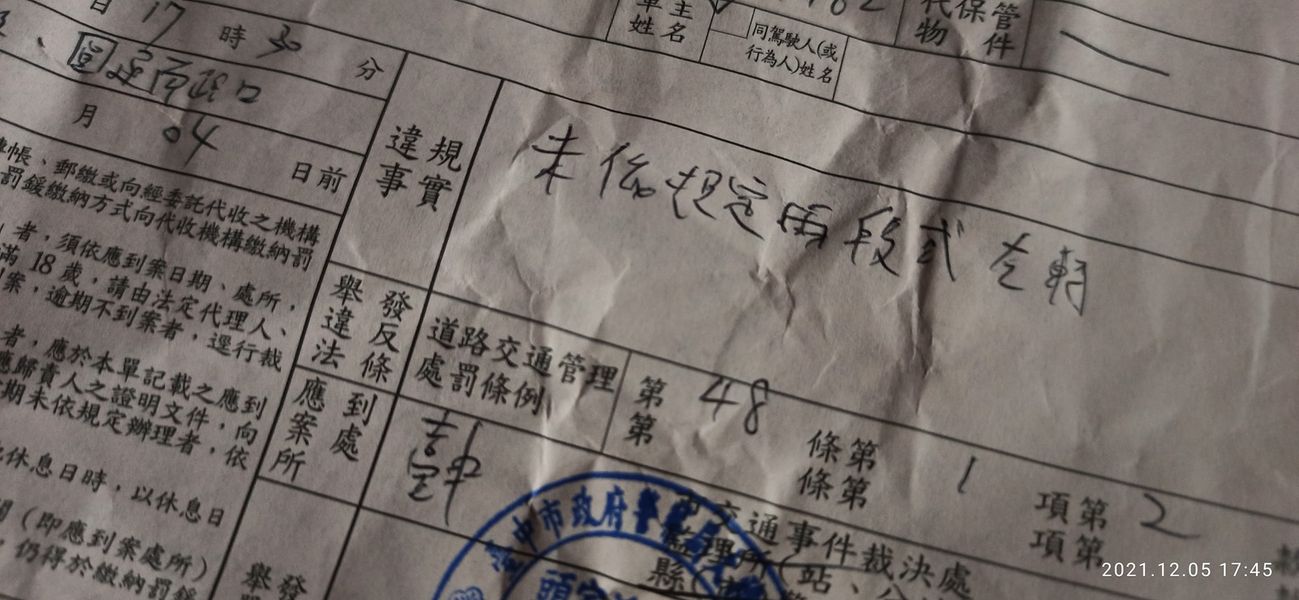 日 17 時 30 分
月 04 日前
車主姓名
同駕駛人(或
行為人)姓名
代保管物件
違規事實
未依規定兩段式左轉
帳、郵繳或向經委託代收之機構
罰鍰繳納方式向代收機構繳納罰
者，須依應到案日期、處所，
滿 18 歲，請由法定代理人、
案，逾期不到案者，逕行裁
者，應於本單記載之應到
應歸責人之證明文件，向
期未依規定辦理者，依
休息日時，以休息日
(即應到案處所)
仍得於繳納罰鍰
舉發違反法條
道路交通管理
處罰條例
第 48 條第 1 項第 2
第 條第 項第
應到案處所
市交通事件裁決處
監理所(站、
縣
臺中市政府警察局
舉發
2021.12.05 17:45